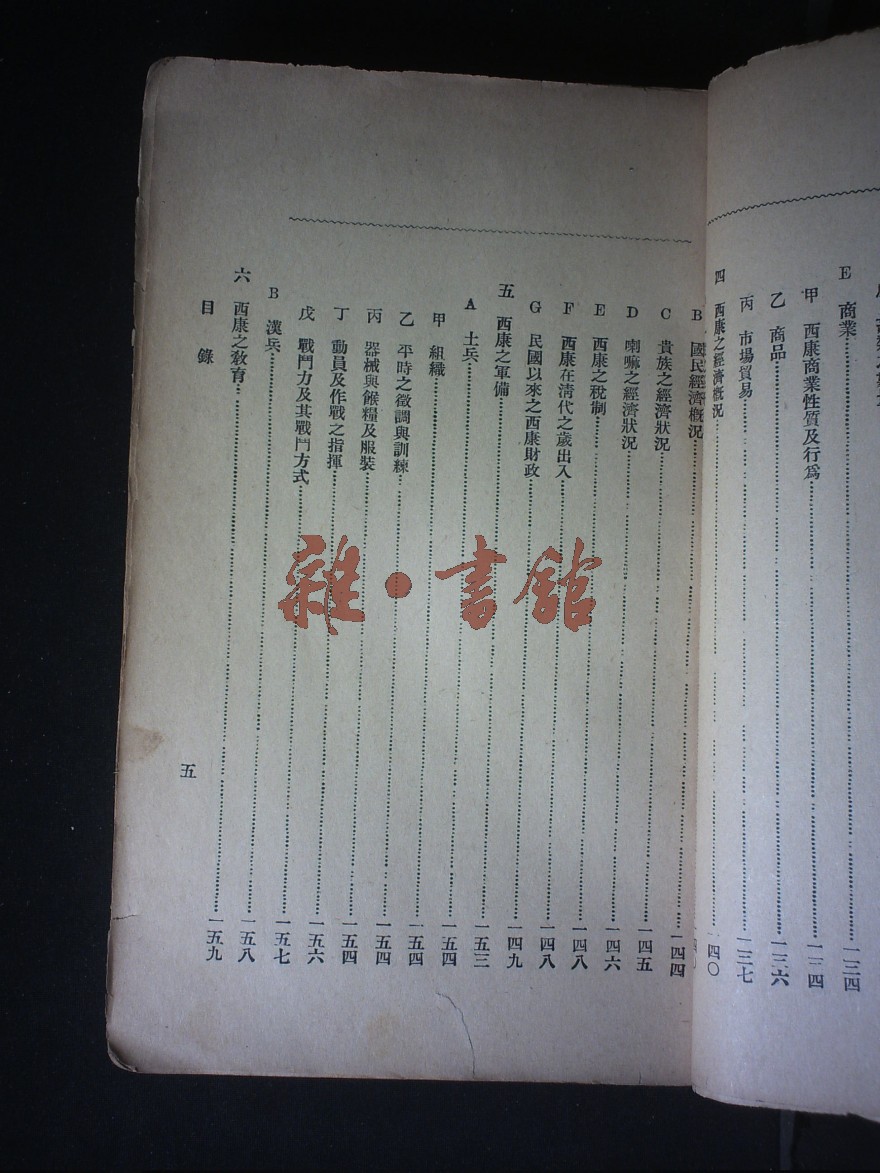 E 商業……一三四
甲 西康商業性質及行爲……一三四
乙 商品……一三六
丙 市場貿易……一三七
四 西康之經濟概況……四〇
B 國民經濟概況……一四四
C 貴族之經濟狀況……一四五
D 喇嘛之經濟狀況……一四六
E 西康之稅制……一四八
F 西康在清代之歲出入……一四八
G 民國以來之西康財政……一四九
五 西康之軍備……一五三
A 土兵……一五四
甲 組織……一五四
乙 平時之徵調與訓練……一五四
丙 器械與餱糧及服裝……一五四
丁 動員及作戰之指揮……一五六
戊 戰鬥力及其戰鬥方式……一五七
B 漢兵……一五八
六 西康之教育……一五九
目錄
五
雜·書館